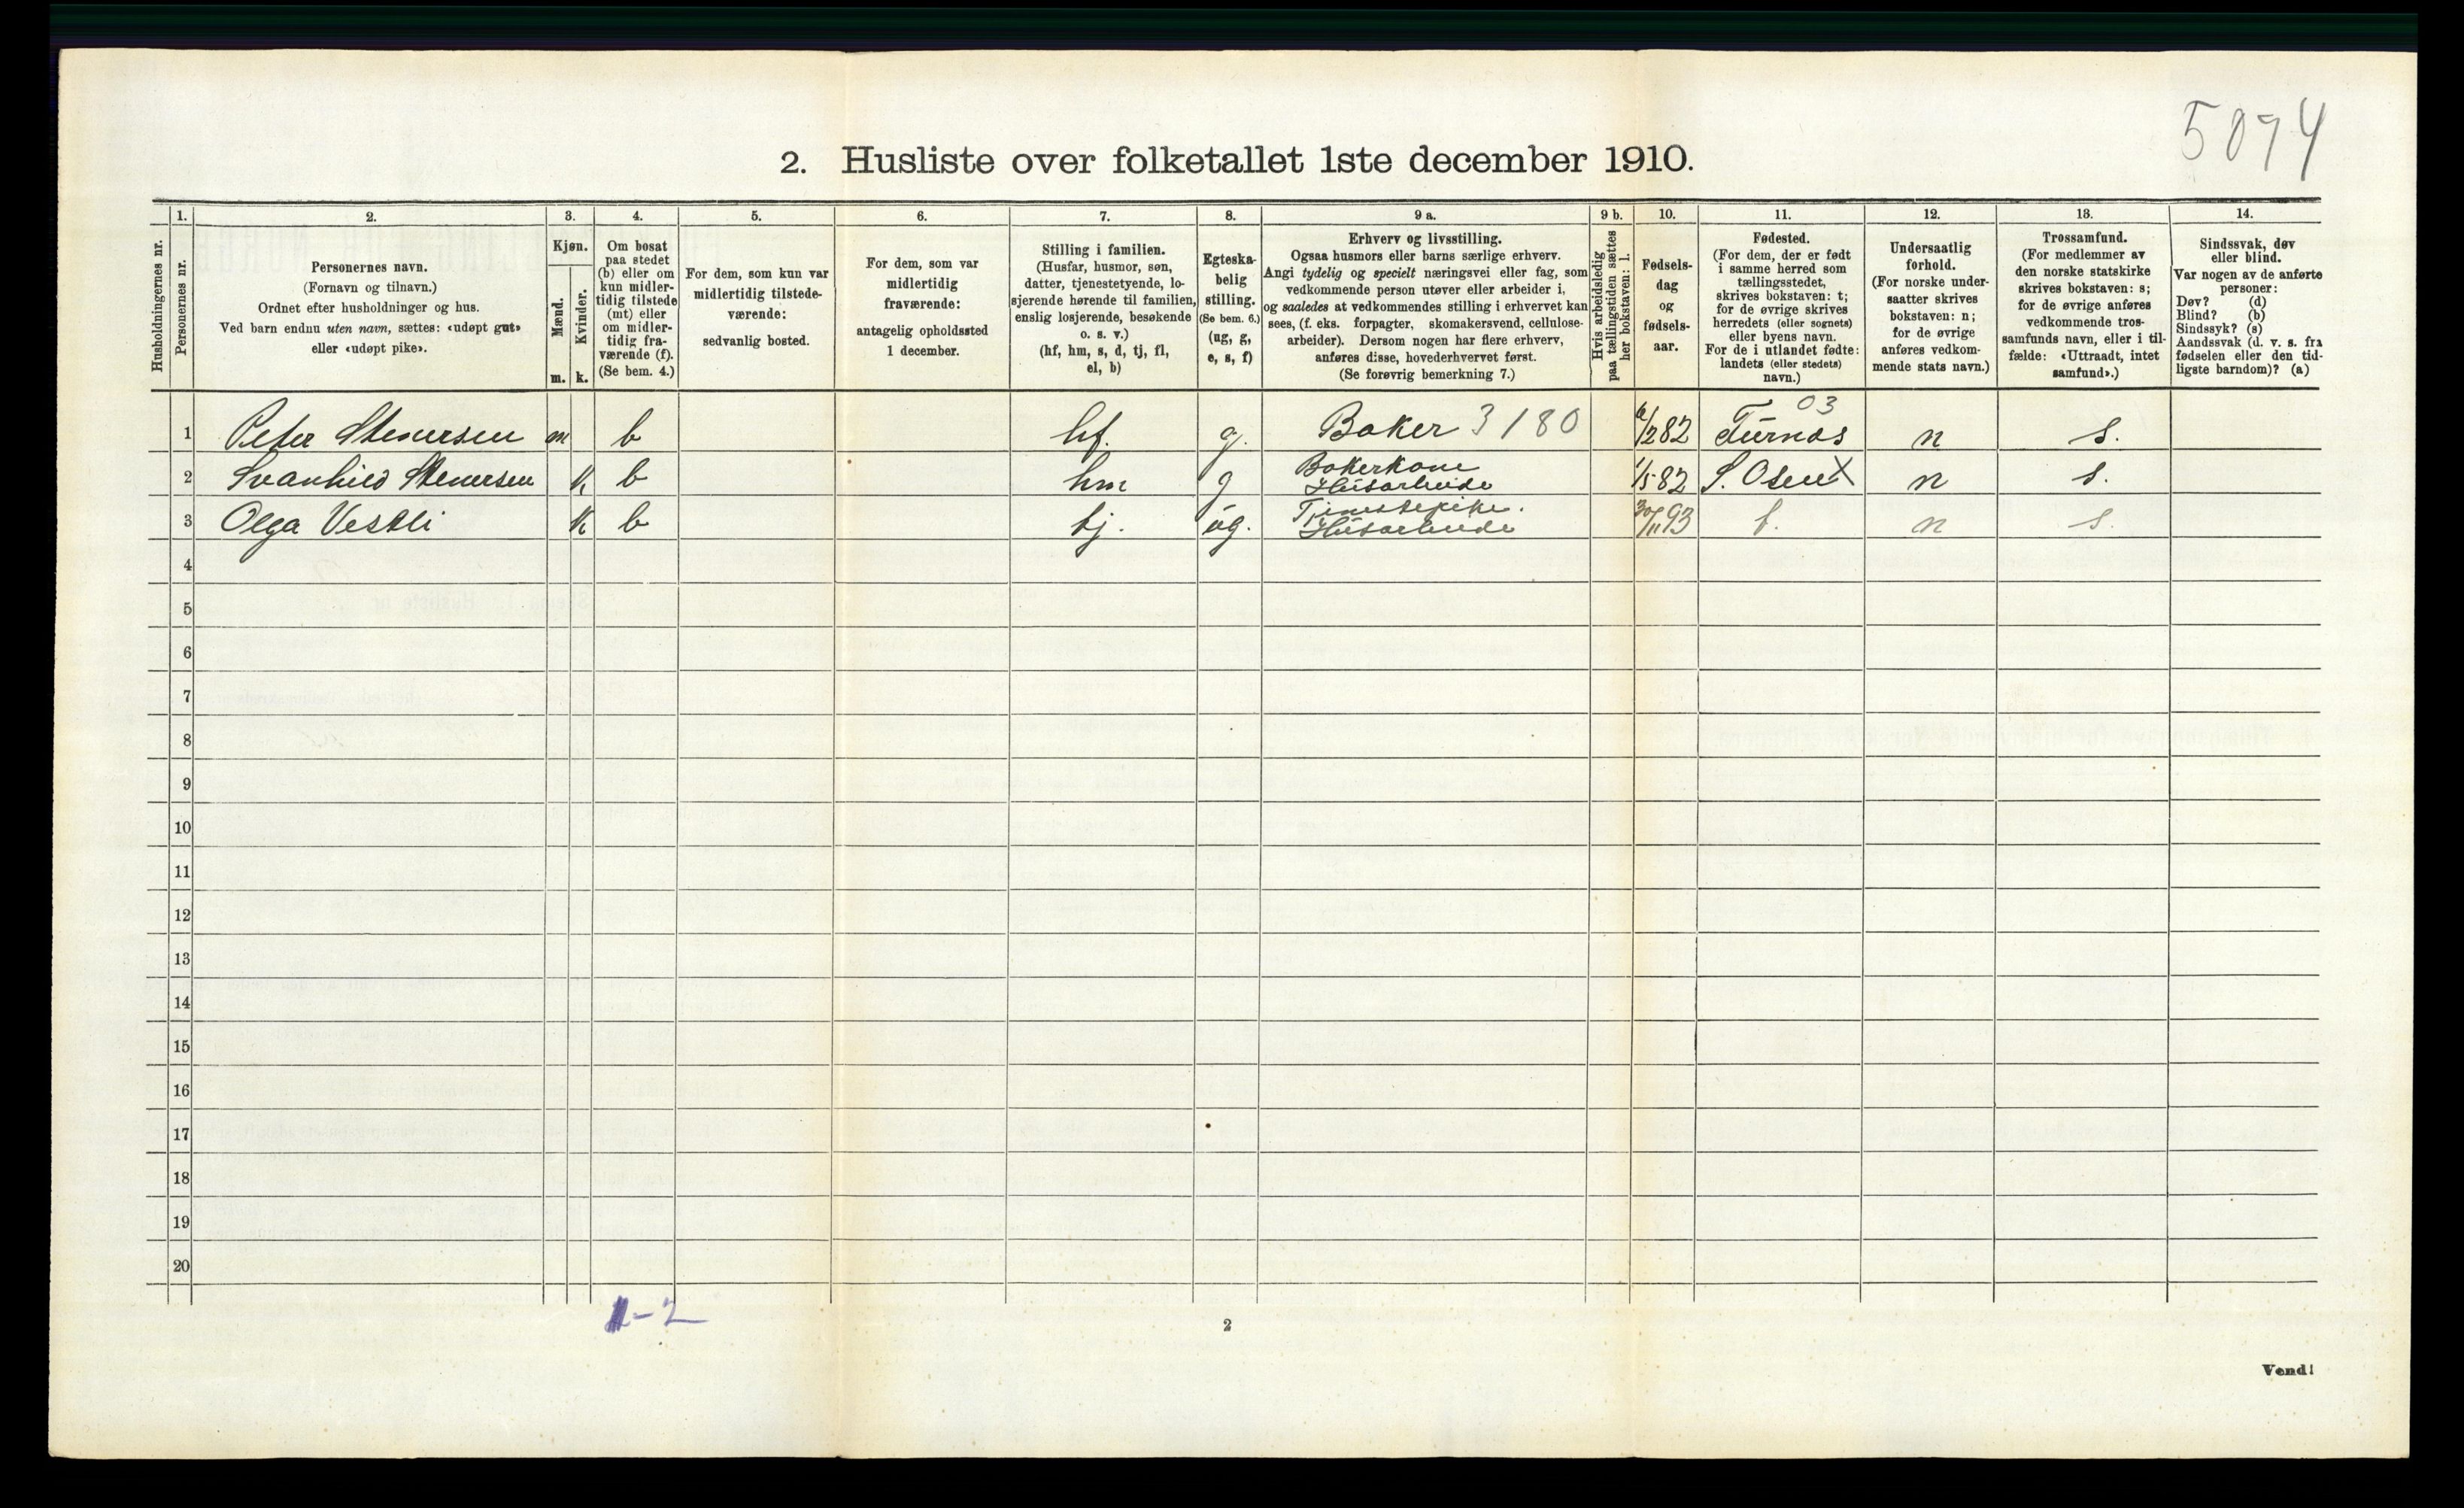 5074
2. Husliste over folketallet 1ste december 1910.
Husholdningernes nr.
1.
Personernes nr.
2.
Personernes navn.
(Fornavn og tilnavn.)
Ordnet efter husholdninger og hus.
Ved barn endnu uten navn, sættes: «udøpt gut»
eller «udøpt pike».
3.
Kjøn.
Mænd.
Kvinder.
m. k.
4.
Om bosat
paa stedet
(b) eller om
kun midler-
tidig tilstede
(mt) eller
om midler-
tidig fra-
værende (f).
(Se bem. 4.)
5.
For dem, som kun var
midlertidig tilstede-
værende:
sedvanlig bosted.
6.
For dem, som var
midlertidig
fraværende:
antagelig opholdssted
1 december.
7.
Stilling i familien.
(Husfar, husmor, søn,
datter, tjenestetyende, lo-
sjerende hørende til familien,
enslig losjerende, besøkende
o. s. v.)
(hf, hm, s, d, tj, fl,
el, b)
8.
Egteska-
belig
stilling.
(Se bem. 6.)
(ug, g,
e, s, f)
9 a.
Erhverv og livsstilling.
Ogsaa husmors eller barns særlige erhverv.
Angi tydelig og specielt næringsvei eller fag, som
vedkommende person utøver eller arbeider i,
og saaledes at vedkommendes stilling i erhvervet kan
sees, (f. eks. forpagter, skomakersvend, cellulose-
arbeider). Dersom nogen har flere erhverv,
anføres disse, hovederhvervet først.
(Se forøvrig bemerkning 7.)
9 b.
Hvis arbeidsledig
paa tællingstiden sættes
her bokstaven: l.
10.
Fødsels-
dag
og
fødsels-
aar.
11.
Fødested.
(For dem, der er født
i samme herred som
tællingsstedet,
skrives bokstaven: t;
for de øvrige skrives
herredets (eller sognets)
eller byens navn.
For de i utlandet fødte:
landets (eller stedets)
navn.)
12.
Undersaatlig
forhold.
(For norske under-
saatter skrives
bokstaven: n;
for de øvrige
anføres vedkom-
mende stats navn.)
13.
Trossamfund.
(For medlemmer av
den norske statskirke
skrives bokstaven: s;
for de øvrige anføres
vedkommende tros-
samfunds navn, eller i til-
fælde: «Uttraadt, intet
samfund».)
14.
Sindssvak, døv
eller blind.
Var nogen av de anførte
personer:
Døv? (d)
Blind? (b)
Sindssyk? (s)
Aandssvak (d. v. s. fra
fødselen eller den tid-
ligste barndom)? (a)
03
1 Peter Stenersen m b hf. g. Baker 3180 6/2 82 Furnas n s.
2 Svanhild Stenersen k b hm g Bakerkone
Husarbeide 1/5 82 S. Osen X n s.
3 Olga Vestli k b tj. ug. Tjenestepike.
Husarbeide 30/11 93 t. n s.
4
5
6
7
8
9
10
11
12
13
14
15
16
17
18
19
20
1-2
2
Vend!